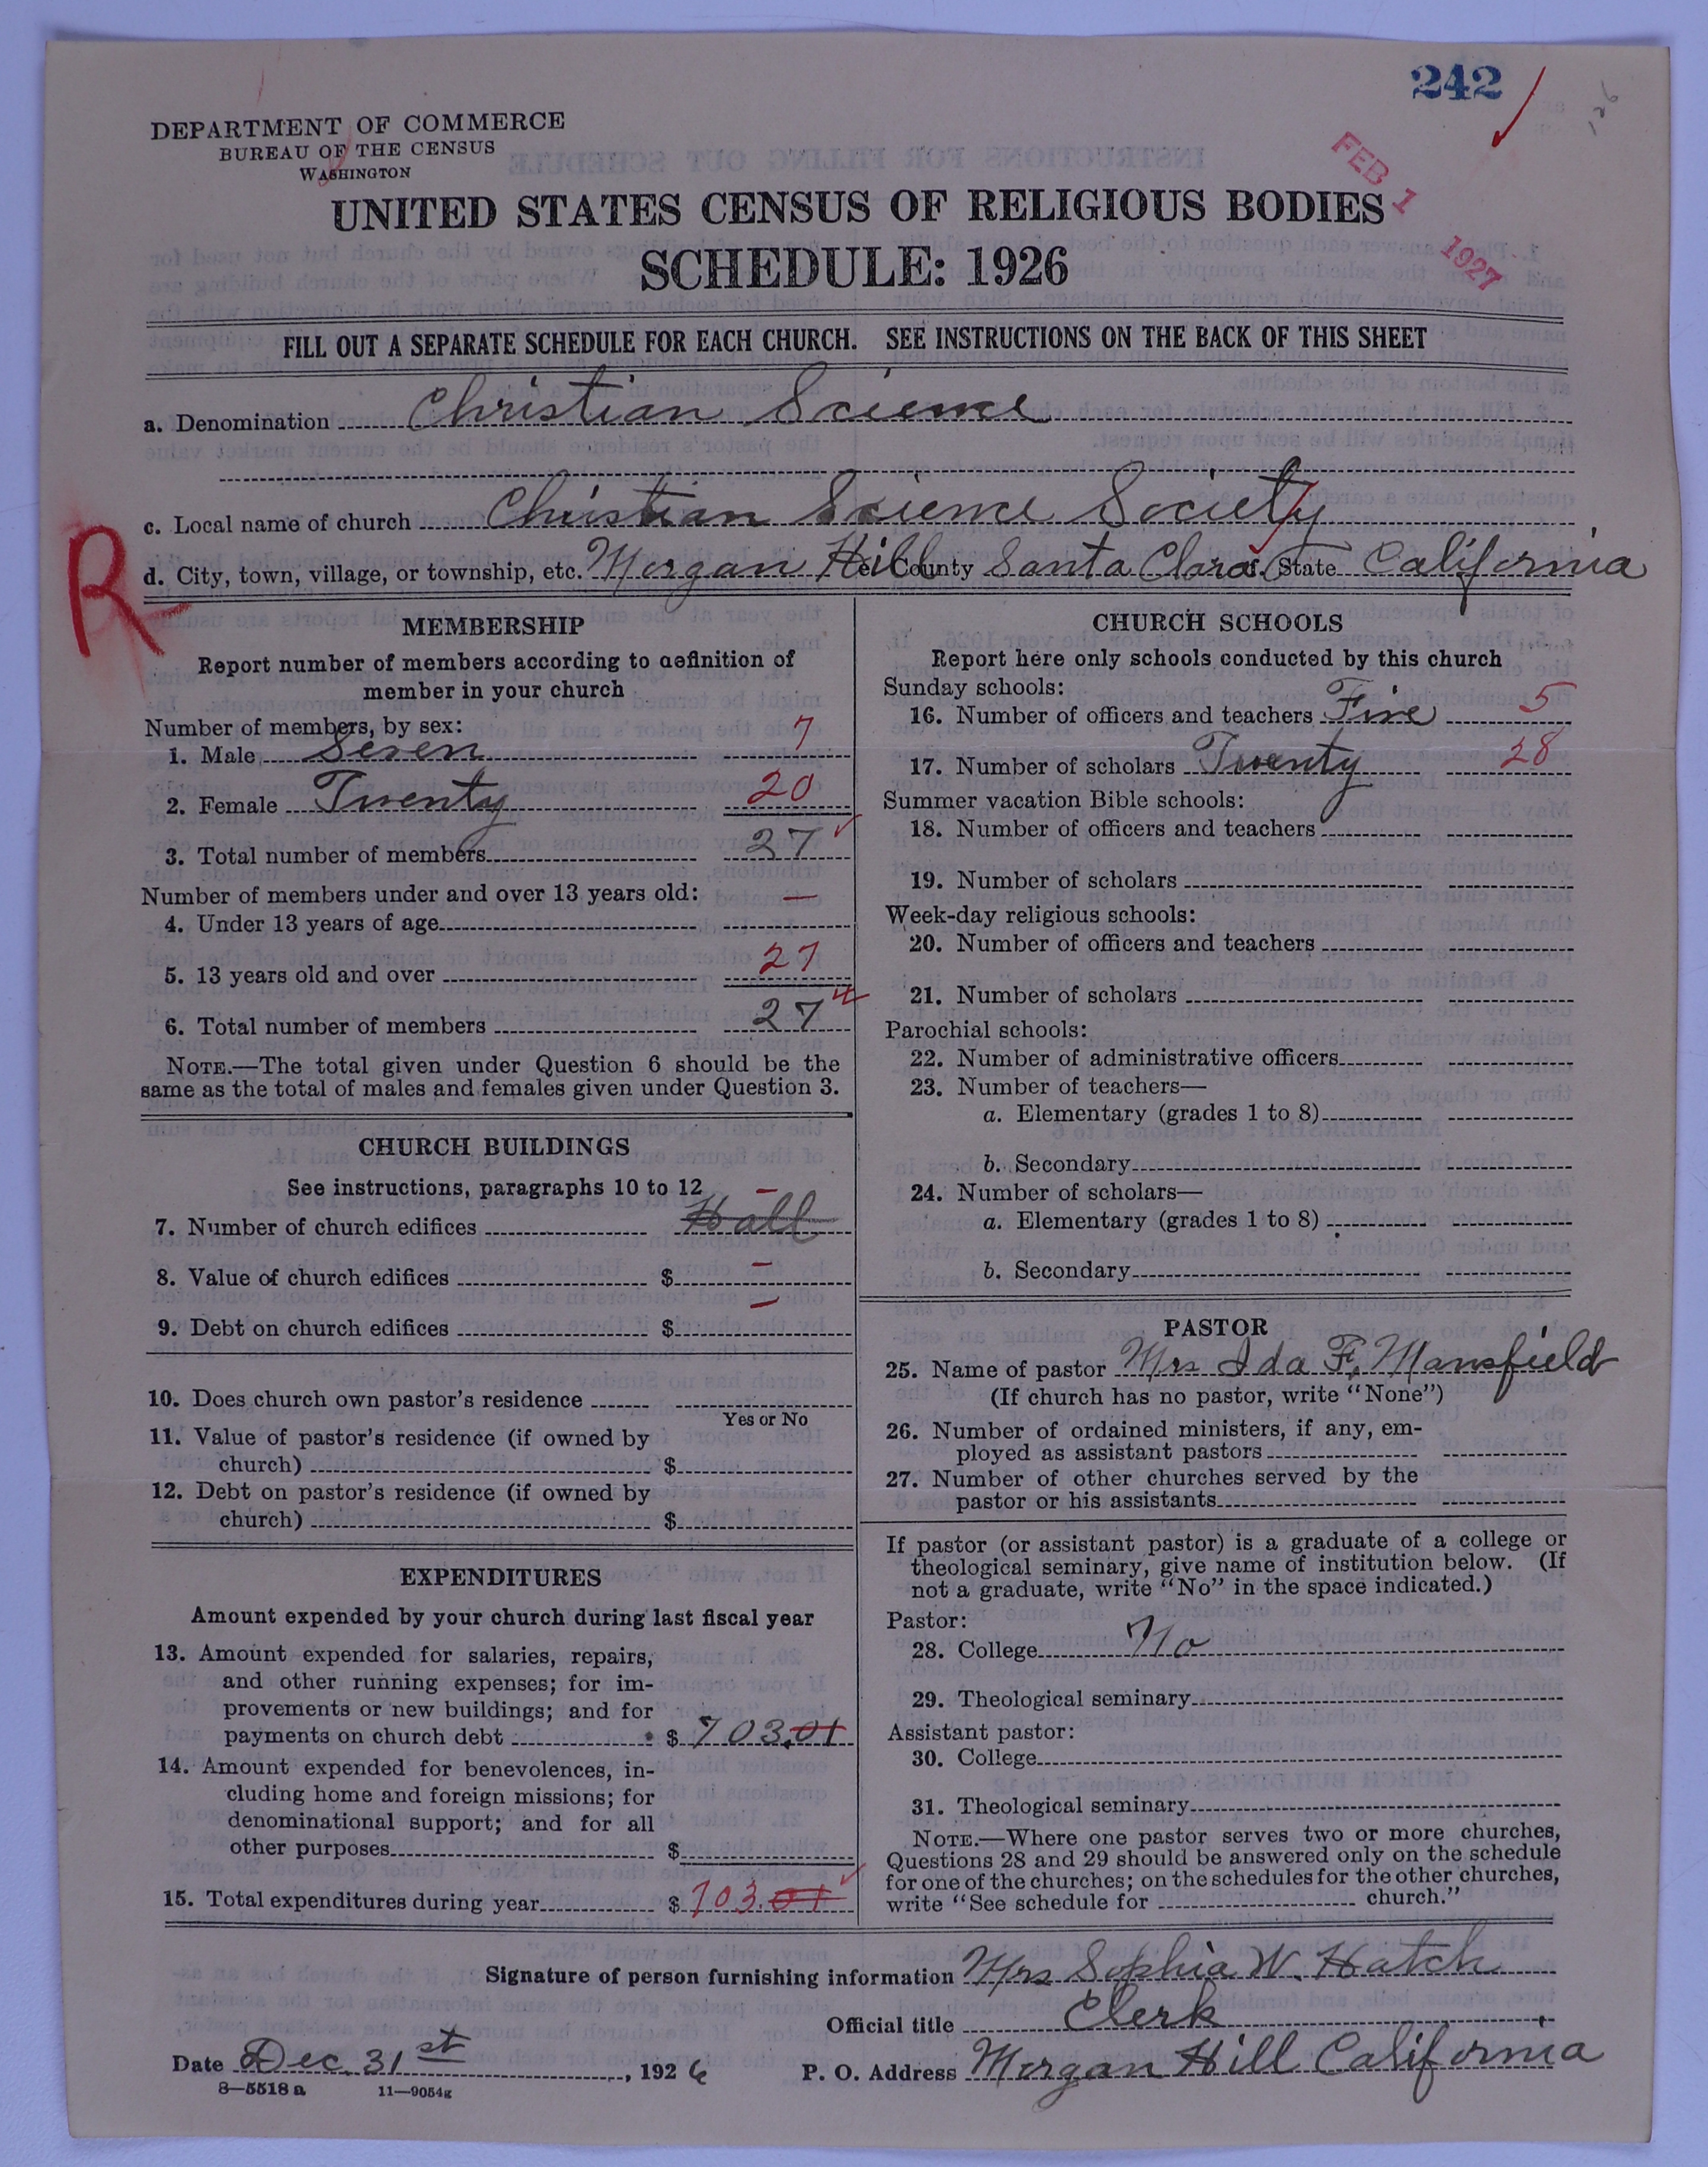 242
126
DEPARTMENT OF COMMERCE
BUREAU OF THE CENSUS
WASHINGTON
FEB 1 1927
UNITED STATES CENSUS OF RELIGIOUS BODIES
SCHEDULE: 1926
FILL OUT A SEPARATE SCHEDULE FOR EACH CHURCH. SEE INSTRUCTIONS ON THE BACK OF THIS SHEET
a. Denomination Christian Science
c. Local name of church Christian Science Society
R
d. City, town, village, or township, etc. Morgan Hill e. County Santa Clara f. State California
MEMBERSHIP
Report number of members according to definition of
member in your church
Number of members, by sex:
1. Male Seven 7
2. Female Twenty 20
3. Total number of members 27
Number of members under and over 13 years old:
4. Under 13 years of age —
5. 13 years old and over 27
6. Total number of members 27
NOTE.—The total given under Question 6 should be the
same as the total of males and females given under Question 3.
CHURCH BUILDINGS
See instructions, paragraphs 10 to 12
7. Number of church edifices Hall —
8. Value of church edifices $ —
9. Debt on church edifices $ —
10. Does church own pastor's residence
Yes or No
11. Value of pastor's residence (if owned by
church) $
12. Debt on pastor's residence (if owned by
church) $
EXPENDITURES
Amount expended by your church during last fiscal year
13. Amount expended for salaries, repairs,
and other running expenses; for im-
provements or new buildings; and for
payments on church debt $ 703.01
14. Amount expended for benevolences, in-
cluding home and foreign missions; for
denominational support; and for all
other purposes $
15. Total expenditures during year $ 703.01
CHURCH SCHOOLS
Report here only schools conducted by this church
Sunday schools:
16. Number of officers and teachers Five 5
17. Number of scholars Twenty 28
Summer vacation Bible schools:
18. Number of officers and teachers
19. Number of scholars
Week-day religious schools:
20. Number of officers and teachers
21. Number of scholars
Parochial schools:
22. Number of administrative officers
23. Number of teachers—
a. Elementary (grades 1 to 8)
b. Secondary
24. Number of scholars—
a. Elementary (grades 1 to 8)
b. Secondary
PASTOR
25. Name of pastor Mrs Ida F. Mansfield
(If church has no pastor, write "None")
26. Number of ordained ministers, if any, em-
ployed as assistant pastors
27. Number of other churches served by the
pastor or his assistants
If pastor (or assistant pastor) is a graduate of a college or
theological seminary, give name of institution below. (If
not a graduate, write "No" in the space indicated.)
Pastor:
28. College No
29. Theological seminary
Assistant pastor:
30. College
31. Theological seminary
NOTE.—Where one pastor serves two or more churches,
Questions 28 and 29 should be answered only on the schedule
for one of the churches; on the schedules for the other churches,
write "See schedule for church."
Signature of person furnishing information Mrs Sophia W. Hatch
Official title Clerk
Date Dec. 31st, 1926 P. O. Address Morgan Hill California
8—5518 a 11—9054g